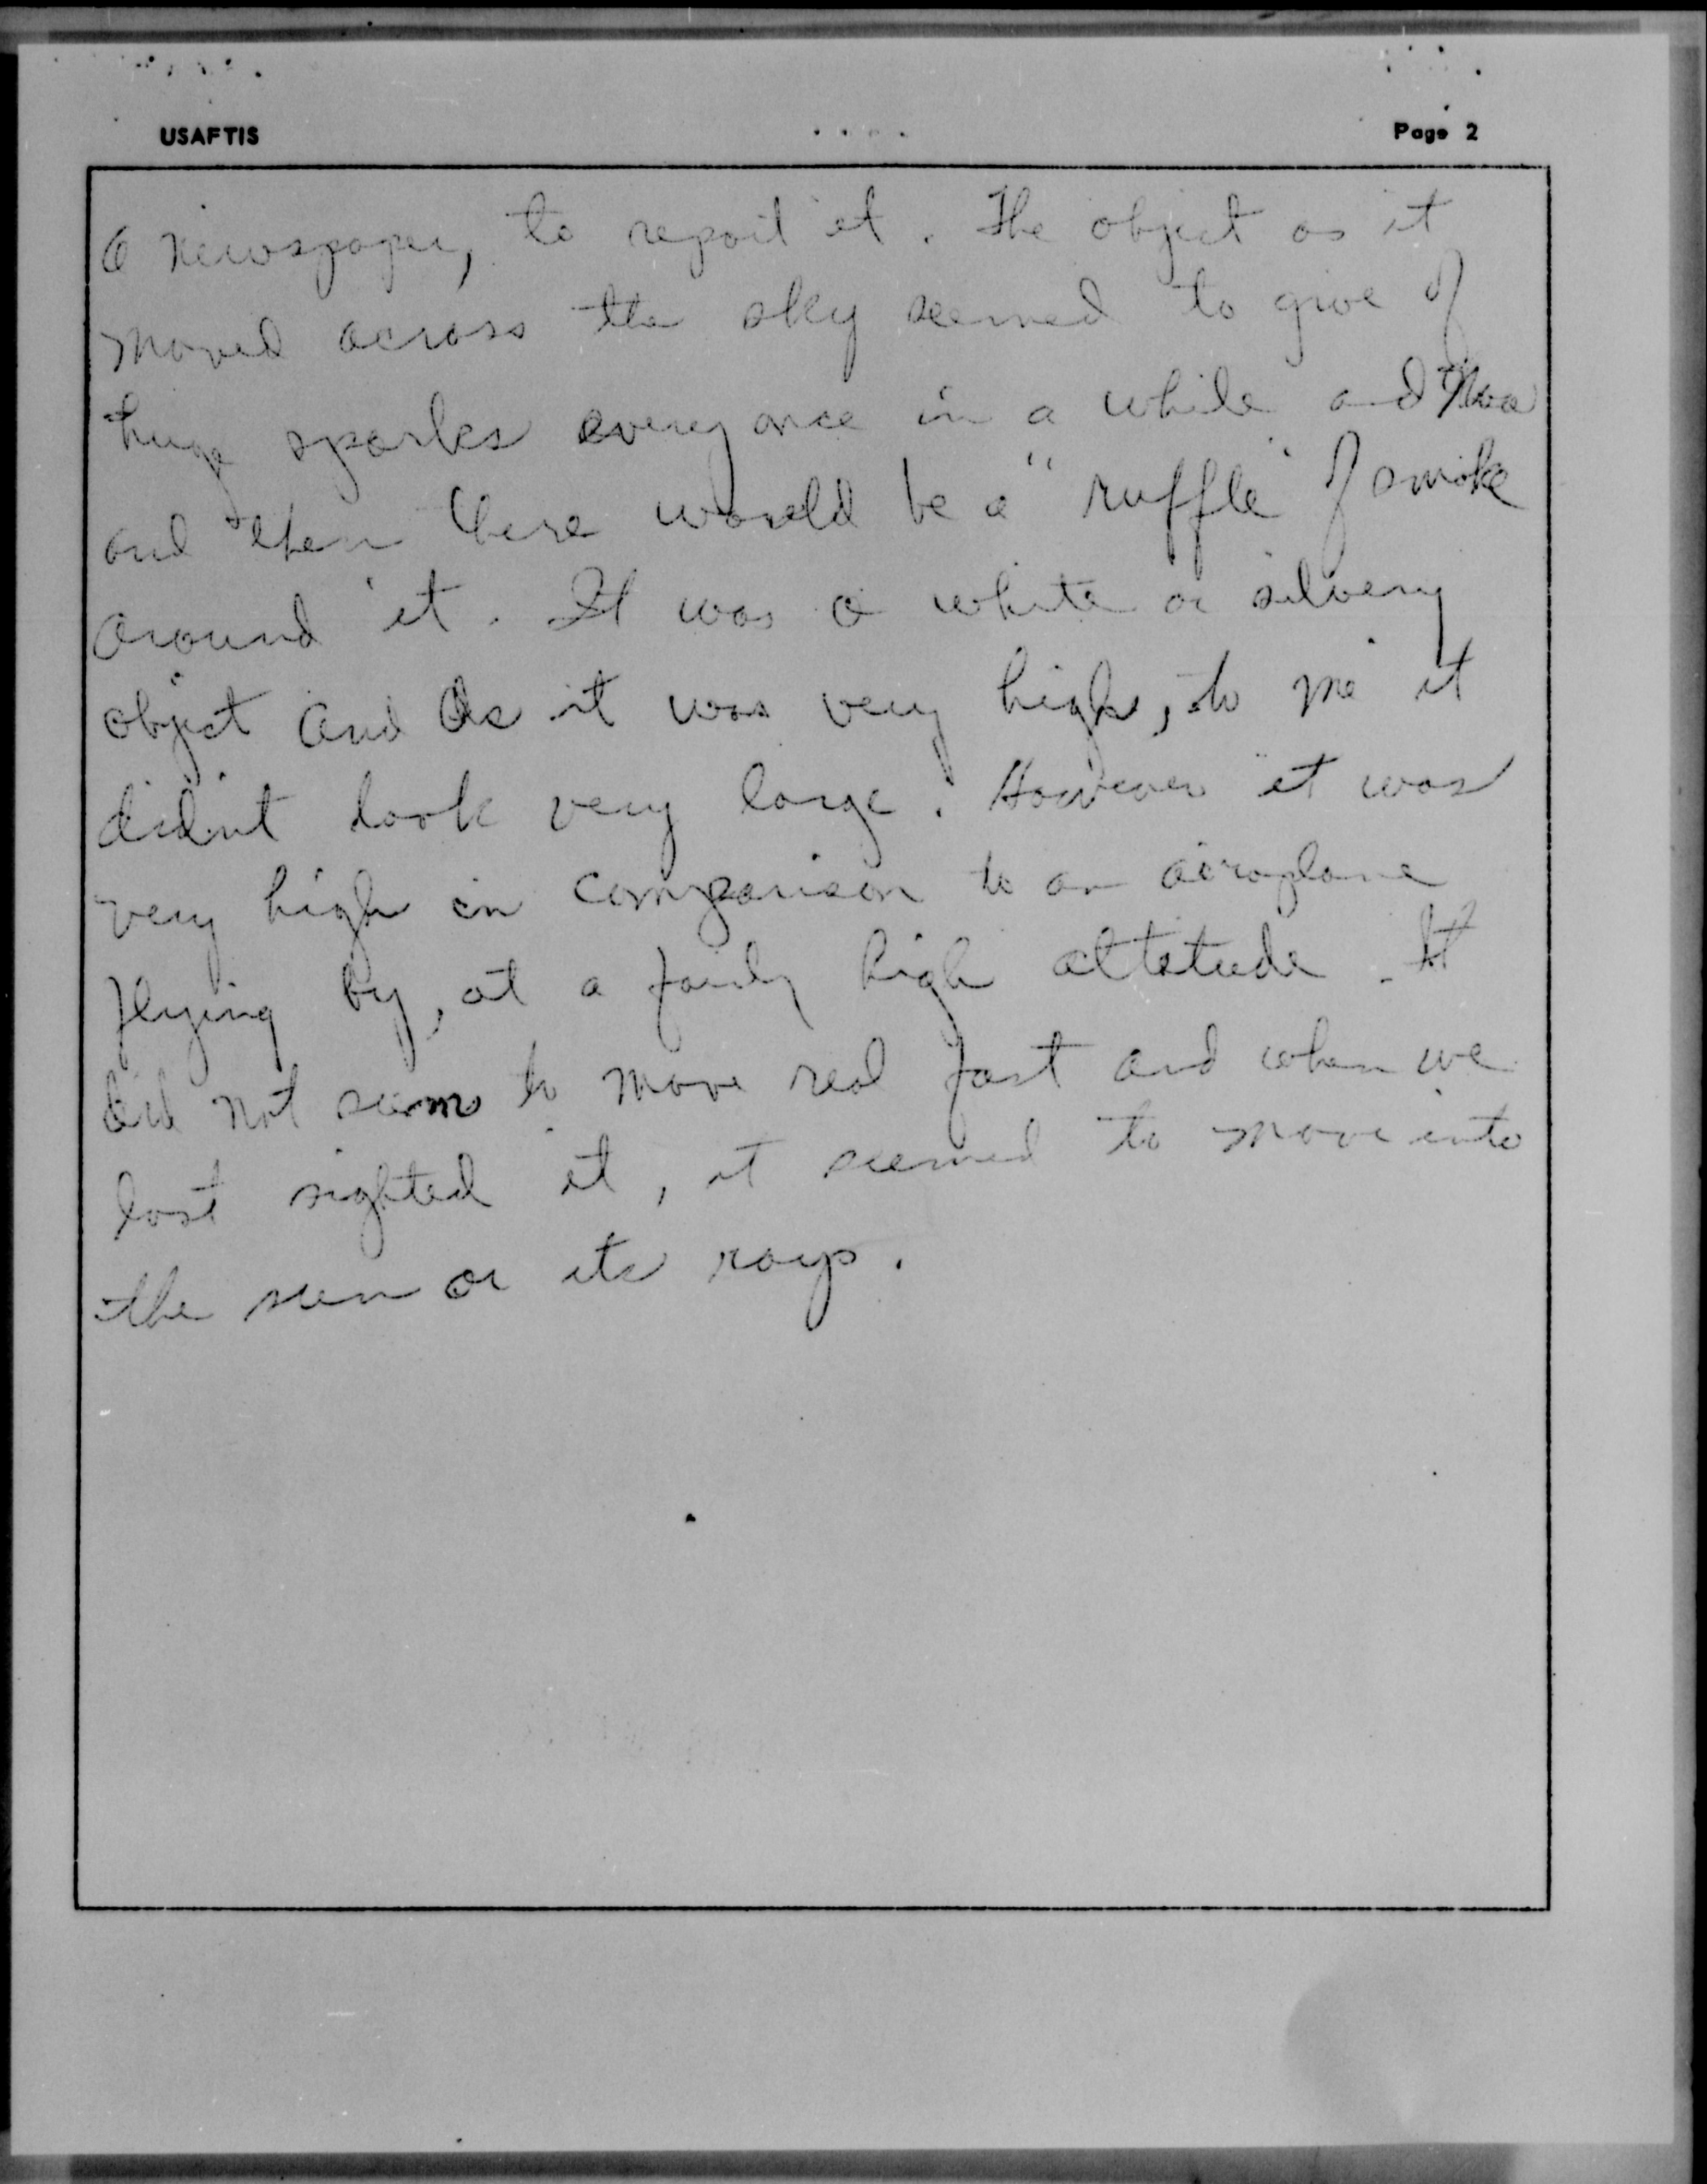 USAFTIS Page 2
a newspaper, to report it. The object as it
moved across the sky seemed to give of
huge sparks every once in a while and
and then there would be a "ruffle" of smoke
around it. It was a white or silvery
object and As it was very high, to me it
didn't look very large. However it was
very high in comparison to an aeroplane
flying by, at a fairly high altitude. It
did not seem to move real fast and when we
last sighted it, it seemed to move into
the sun or its rays.